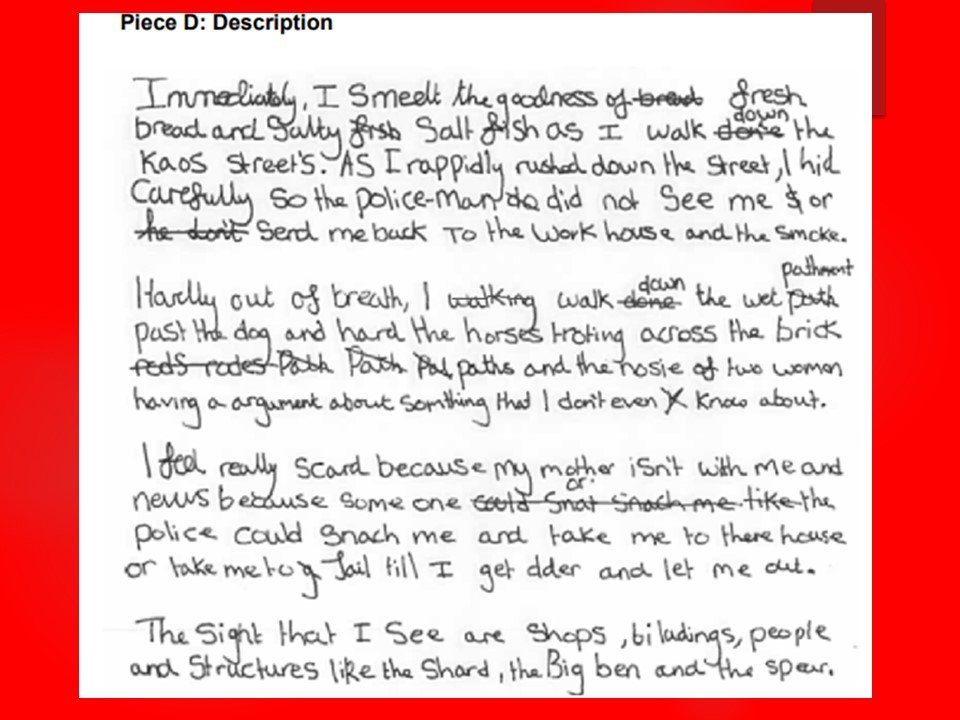 Piece D: Description
Immediatly, I Smeelt the goodness of bread fresh
bread and Salty fish Salt fish as I walk done down the
Kaos street's. AS I rappidly rushed down the street, I hid
Carefully so the police-man do did not See me & or
he don't Send me back To the work house and the smoke.
Hardly out of breath, I walking walk done down the wet path pathment
past the dog and hard the horses troting across the brick
Path Path Pal paths and the nosie of two women
having a argument about somthing that I don't even know about.
I feel really scard because my mother isn't with me and
nevus because some one could Snat Snach me or like the
police could Snach me and take me to there house
or take me to a Jail till I get older and let me out.
The Sight that I See are shops, biladings, people
and Structures like the Shard, the Big ben and the spear.